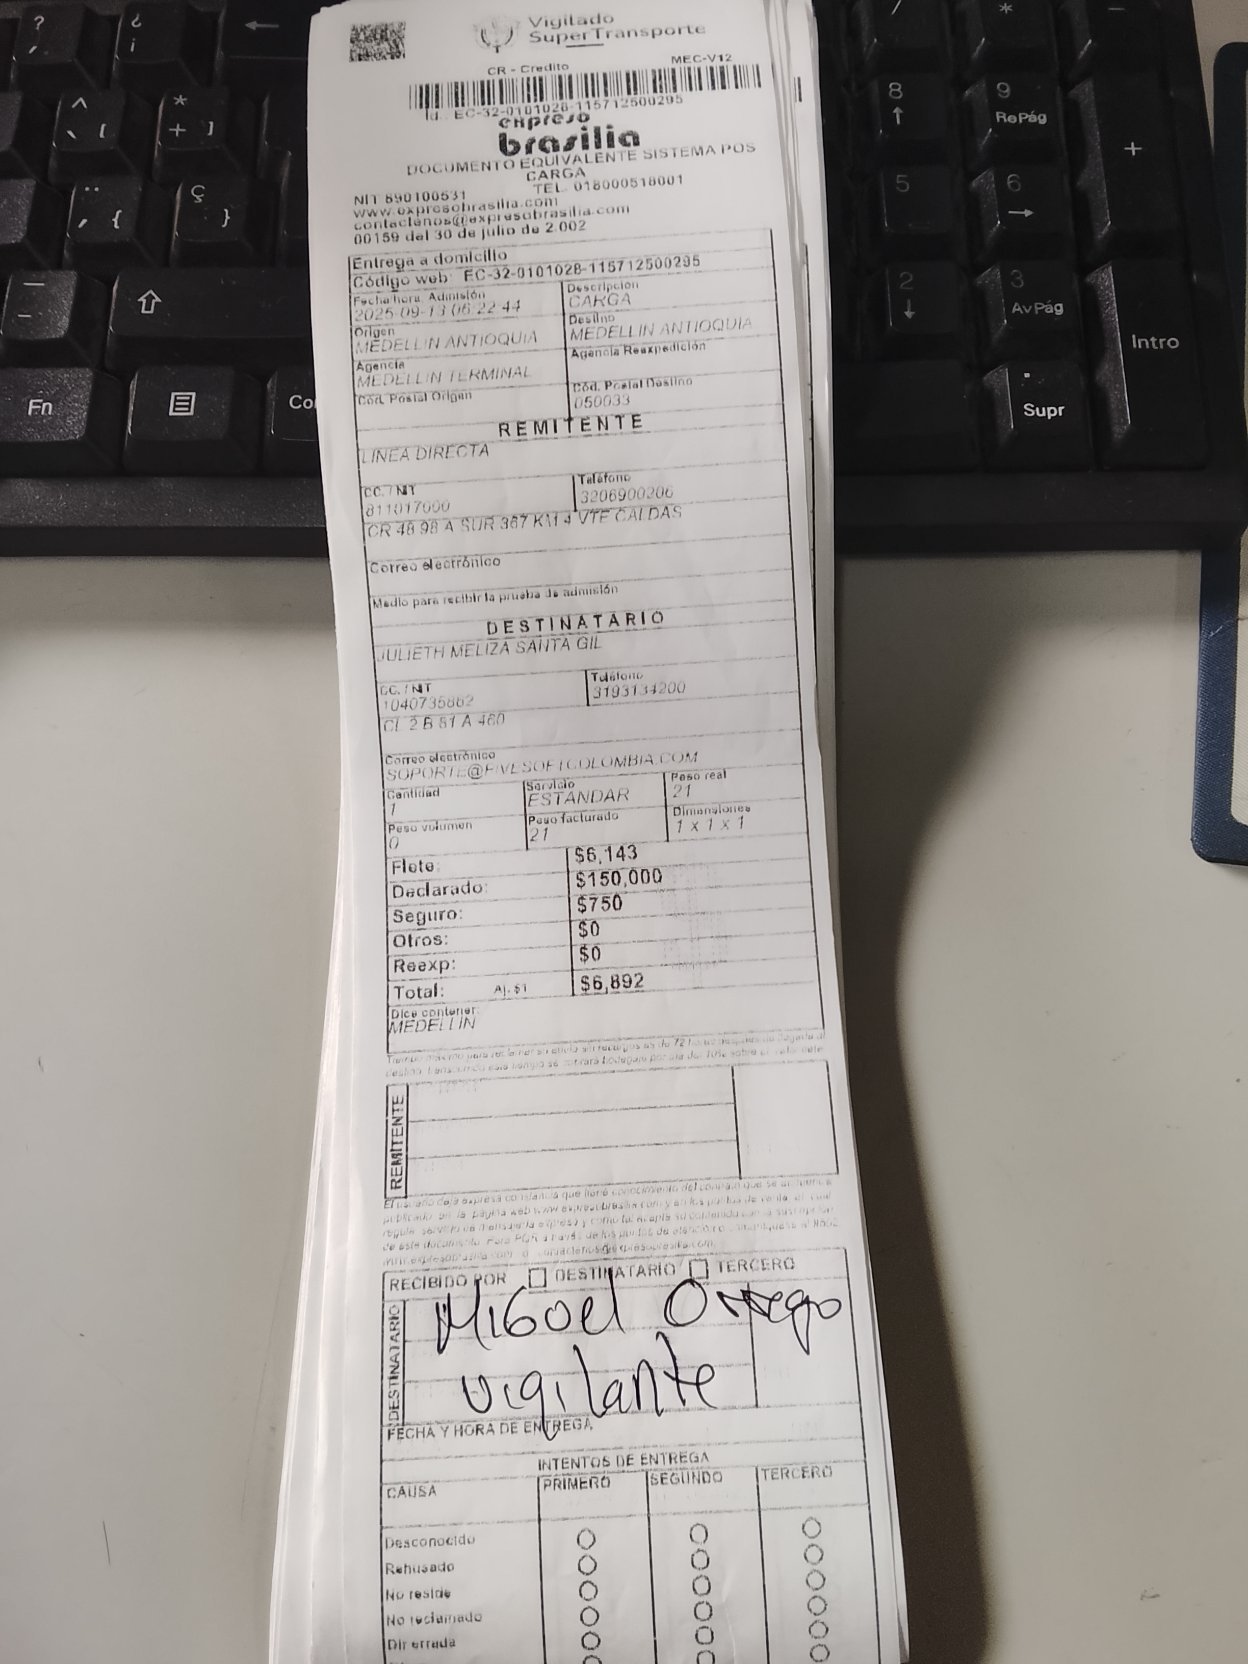 Vigilado
SuperTransporte
CR - Credito MEC-V12
Id.: EC-32-0101028-115712500295
expreso
brasilia
DOCUMENTO EQUIVALENTE SISTEMA POS
CARGA
NIT 890100531 TEL. 018000518001
www.expresobrasilia.com
contactenos@expresobrasilia.com
00159 del 30 de julio de 2.002
Entrega a domicilio
Código web: EC-32-0101028-115712500295
Fecha hora. Admisión Descripcion
2025-09-13 06:22:44 CARGA
Origen Destino
MEDELLIN ANTIOQUIA MEDELLIN ANTIOQUIA
Agencia Agencia Reexpedición
MEDELLIN TERMINAL
Cód. Postal Origen Cód. Postal Destino
050033
REMITENTE
LINEA DIRECTA
CC. / NIT Teléfono
811017600 3206900206
CR 48 98 A SUR 367 KM 4 VTE CALDAS
Correo electrónico
Medio para recibir la prueba de admisión
DESTINATARIO
JULIETH MELIZA SANTA GIL
CC. / NIT Teléfono
1040735862 3193134200
CL 2 B 81 A 460
Correo electrónico
SOPORTE@FIVESOFTCOLOMBIA.COM
Cantidad Servicio Peso real
1 ESTANDAR 21
Peso volumen Peso facturado Dimensiones
0 21 1 x 1 x 1
Flete: $6,143
Declarado: $150,000
Seguro: $750
Otros: $0
Reexp: $0
Total: Aj. $1 $6,892
Dice contener:
MEDELLIN
REMITENTE
RECIBIDO POR DESTINATARIO TERCERO
DESTINATARIO
Miguel Orrego
vigilante
FECHA Y HORA DE ENTREGA
INTENTOS DE ENTREGA
CAUSA PRIMERO SEGUNDO TERCERO
Desconocido
Rehusado
No reside
No reclamado
Dir errada
? ¿
, ¡
^ *
` [ + ]
¨ ç
´ { }
Fn
/ * -
8 9 +
RePág
5 6
2 3
AvPág
Intro
.
Supr